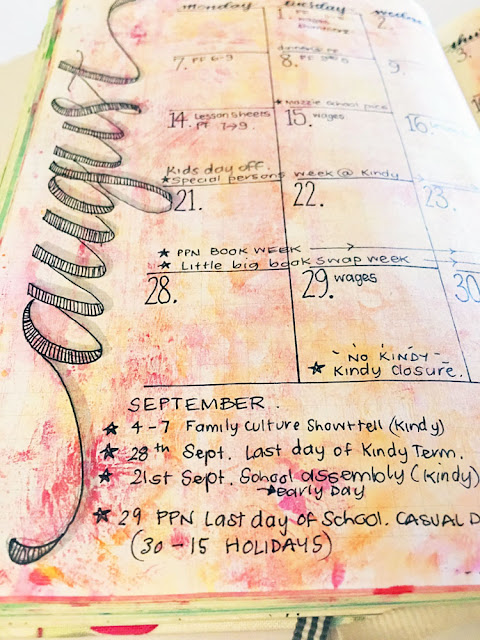 august
monday tuesday
1. PF 2.
wages
7. PF 6-9 8. 9.
3.
Mazzie school pics
14. Lesson sheets 15. wages 16.
PF 7→9.
Kids day off.
★ Special persons week @ Kindy
21. 22. 23.
★ PPN BOOK WEEK
★ Little big book swap week
28. 29. wages 30
- NO KINDY -
★ Kindy closure.
SEPTEMBER.
★ 4-7 Family Culture Show+tell (Kindy)
★ 28th Sept. Last day of Kindy Term.
★ 21st Sept. School assembly (Kindy)
→ early Day
★ 29 PPN Last day of School. CASUAL D
(30-15 HOLIDAYS)